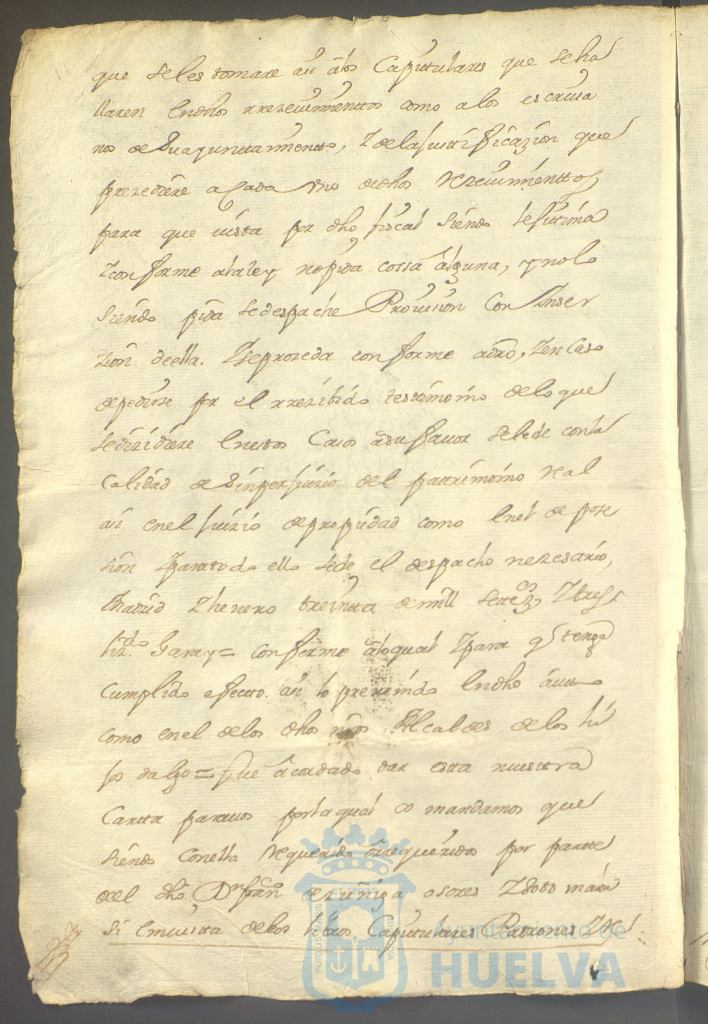 que se les tomare así a los Capitulares que se ha
llaren en dhos rrezeuimientos como a los escriua
nos de su ayuntamiento, Y de la justificazion que
prezediere a Cada vno de dhos Rezeuimientos
para que uista por dho fiscal siendo lejitima
Y conforme a la ley no pida cossa alguna, y no lo
siendo pida se despache Prouision Con Ynser
zion de ella. Y se prozeda conforme a dro, Y en Caso
de pedirse por el rrezibido testimonio de lo que
se dizidiere en estos Casos a su fauor se le de con la
Calidad de sin perjuizio del patrimonio real
así en el juizio de propiedad como en el de pose
sion Y para todo ello se de el despacho nezesario,
Madrid Y henero treinta de mill setecs Y tres
Lizdo Garay = conforme a lo qual Y para q tenga
Cumplido efecto así lo preuenido en dho auto
como en el de los dhos nros Alcaldes de los hi
jos dalgo = fue acordado dar esta nuestra
Carta para uos por la qual os mandamos que
siendo con ella Requerido o requeridos por parte
del dho Dn franco de zuñiga osores Y
si en uista de los Capitulares Patrones
Ayuntamiento de
HUELVA